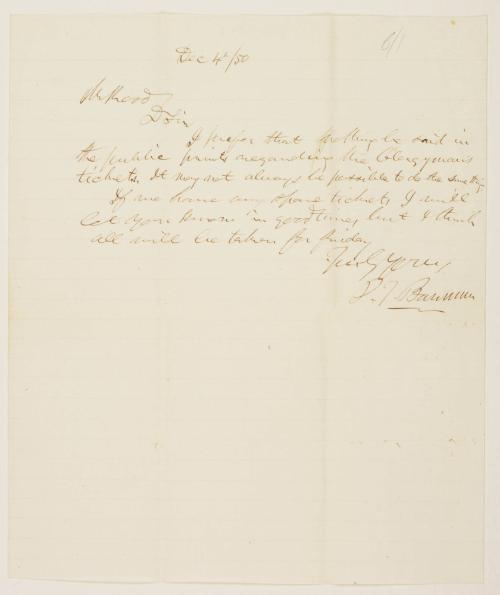 6/1
Dec 4th/50
Mr Rood
D Sir
I prefer that nothing be said in
the public prints regarding the Clergyman's
tickets. It may not always be possible to do the same thing
If we have any spare tickets, I will
let you know in good time, but I think
all will be taken for friday
Truly Yours,
P. T. Barnum